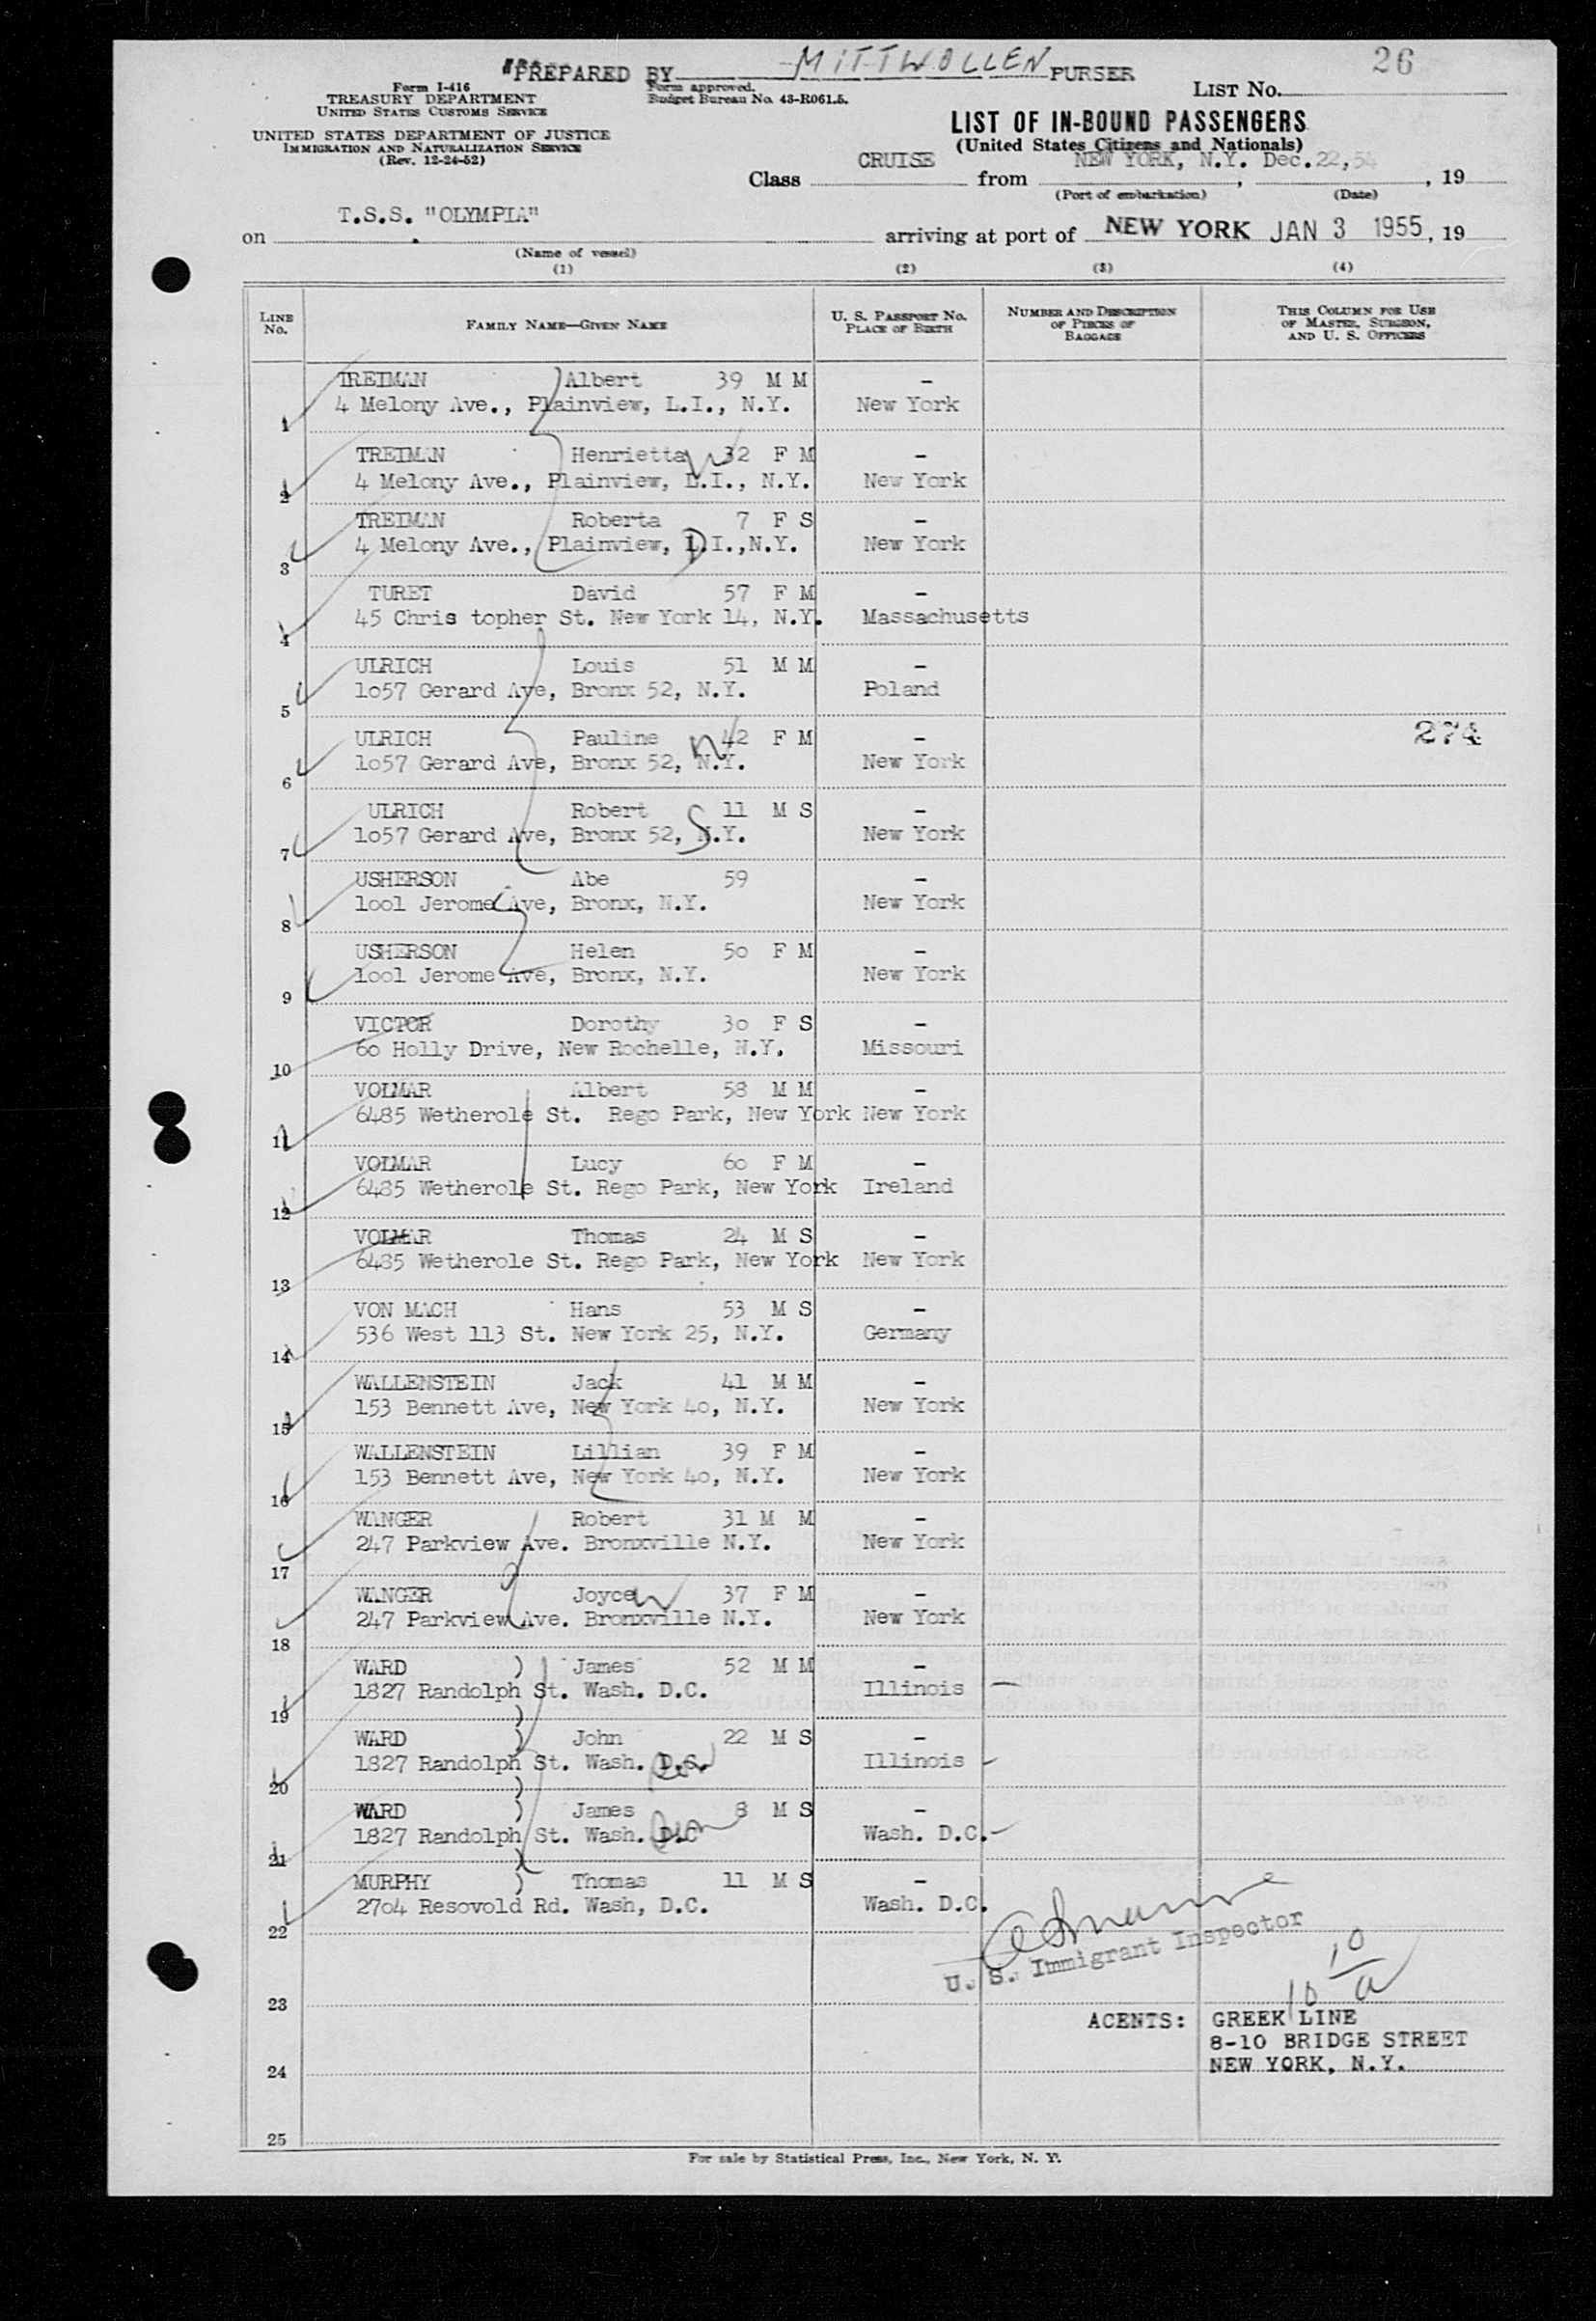 PREPARED BY MITTWOLLEN PURSER
26
Form I-416
TREASURY DEPARTMENT
UNITED STATES CUSTOMS SERVICE
Form approved.
Budget Bureau No. 43-R061.5.
LIST No.
UNITED STATES DEPARTMENT OF JUSTICE
IMMIGRATION AND NATURALIZATION SERVICE
(Rev. 12-24-52)
LIST OF IN-BOUND PASSENGERS
(United States Citizens and Nationals)
Class CRUISE from NEW YORK, N.Y. Dec.22,54, 19
(Port of embarkation) (Date)
on T.S.S. "OLYMPIA" arriving at port of NEW YORK JAN 3 1955, 19
(Name of vessel)
(1) (2) (3) (4)
LINE No. FAMILY NAME—GIVEN NAME U. S. PASSPORT No. PLACE OF BIRTH NUMBER AND DESCRIPTION OF PIECES OF BAGGAGE THIS COLUMN FOR USE OF MASTER, SURGEON, AND U. S. OFFICERS
TREIMAN Albert 39 M M -
1 4 Melony Ave., Plainview, L.I., N.Y. New York
TREIMAN Henrietta 32 F M -
2 4 Melony Ave., Plainview, L.I., N.Y. New York
TREIMAN Roberta 7 F S -
3 4 Melony Ave., Plainview, L.I.,N.Y. New York
TURET David 57 F M -
4 45 Chris topher St. New York 14, N.Y. Massachusetts
ULRICH Louis 51 M M -
5 1o57 Gerard Ave, Bronx 52, N.Y. Poland
ULRICH Pauline 42 F M - 274
6 1o57 Gerard Ave, Bronx 52, N.Y. New York
ULRICH Robert 11 M S -
7 1o57 Gerard Ave, Bronx 52, N.Y. New York
USHERSON Abe 59 -
8 1oo1 Jerome Ave, Bronx, N.Y. New York
USHERSON Helen 5o F M -
9 1oo1 Jerome Ave, Bronx, N.Y. New York
VICTOR Dorothy 3o F S -
10 6o Holly Drive, New Rochelle, N.Y. Missouri
VOLMAR Albert 58 M M -
11 6485 Wetherole St. Rego Park, New York New York
VOLMAR Lucy 6o F M -
12 6485 Wetherole St. Rego Park, New York Ireland
VOLMAR Thomas 24 M S -
13 6485 Wetherole St. Rego Park, New York New York
VON MACH Hans 53 M S -
14 536 West 113 St. New York 25, N.Y. Germany
WALLENSTEIN Jack 41 M M -
15 153 Bennett Ave, New York 4o, N.Y. New York
WALLENSTEIN Lillian 39 F M -
16 153 Bennett Ave, New York 4o, N.Y. New York
WANGER Robert 31 M M -
17 247 Parkview Ave. Bronxville N.Y. New York
WANGER Joyce 37 F M -
18 247 Parkview Ave. Bronxville N.Y. New York
WARD ) James 52 M M -
19 1827 Randolph St. Wash. D.C. Illinois
WARD ) John 22 M S -
20 1827 Randolph St. Wash. D.C. Illinois
WARD ) James 8 M S -
21 1827 Randolph St. Wash. D.C Wash. D.C.
MURPHY ) Thomas 11 M S -
22 27o4 Resovold Rd. Wash, D.C. Wash. D.C.
U. S. Immigrant Inspector
23
ACENTS: GREEK LINE
8-10 BRIDGE STREET
24 NEW YORK, N.Y.
25
For sale by Statistical Press, Inc., New York, N. Y.